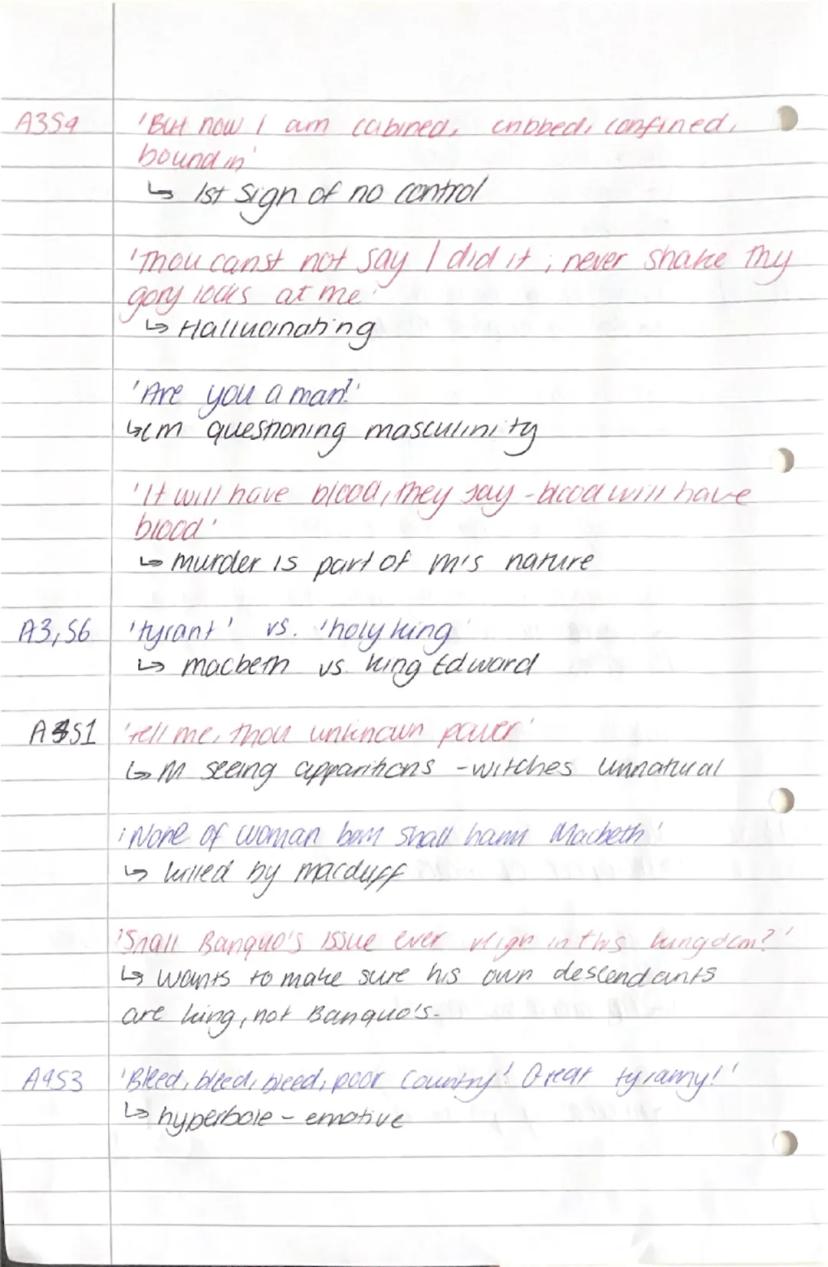 A3S4 'But now I am cabined, cribbed, confined,
bound in'
↳ 1st sign of no control
'Thou canst not say I did it; never shake thy
gory locks at me'
↳ Hallucinating
'Are you a man?'
↳ LM questioning masculinity
'It will have blood, they say - blood will have
blood'
↳ murder is part of M's nature
A3, S6 'tyrant' vs. 'holy king'
↳ macbeth vs king Edward
A4S1 'Tell me, thou unknown power'
↳ M seeing apparitions - witches unnatural
'None of woman born shall harm Macbeth'
↳ killed by macduff
'Shall Banquo's issue ever reign in this kingdom?'
↳ wants to make sure his own descendants
are king, not Banquo's.
A4S3 'Bleed, bleed, bleed, poor country! Great tyranny!'
↳ hyperbole - emotive